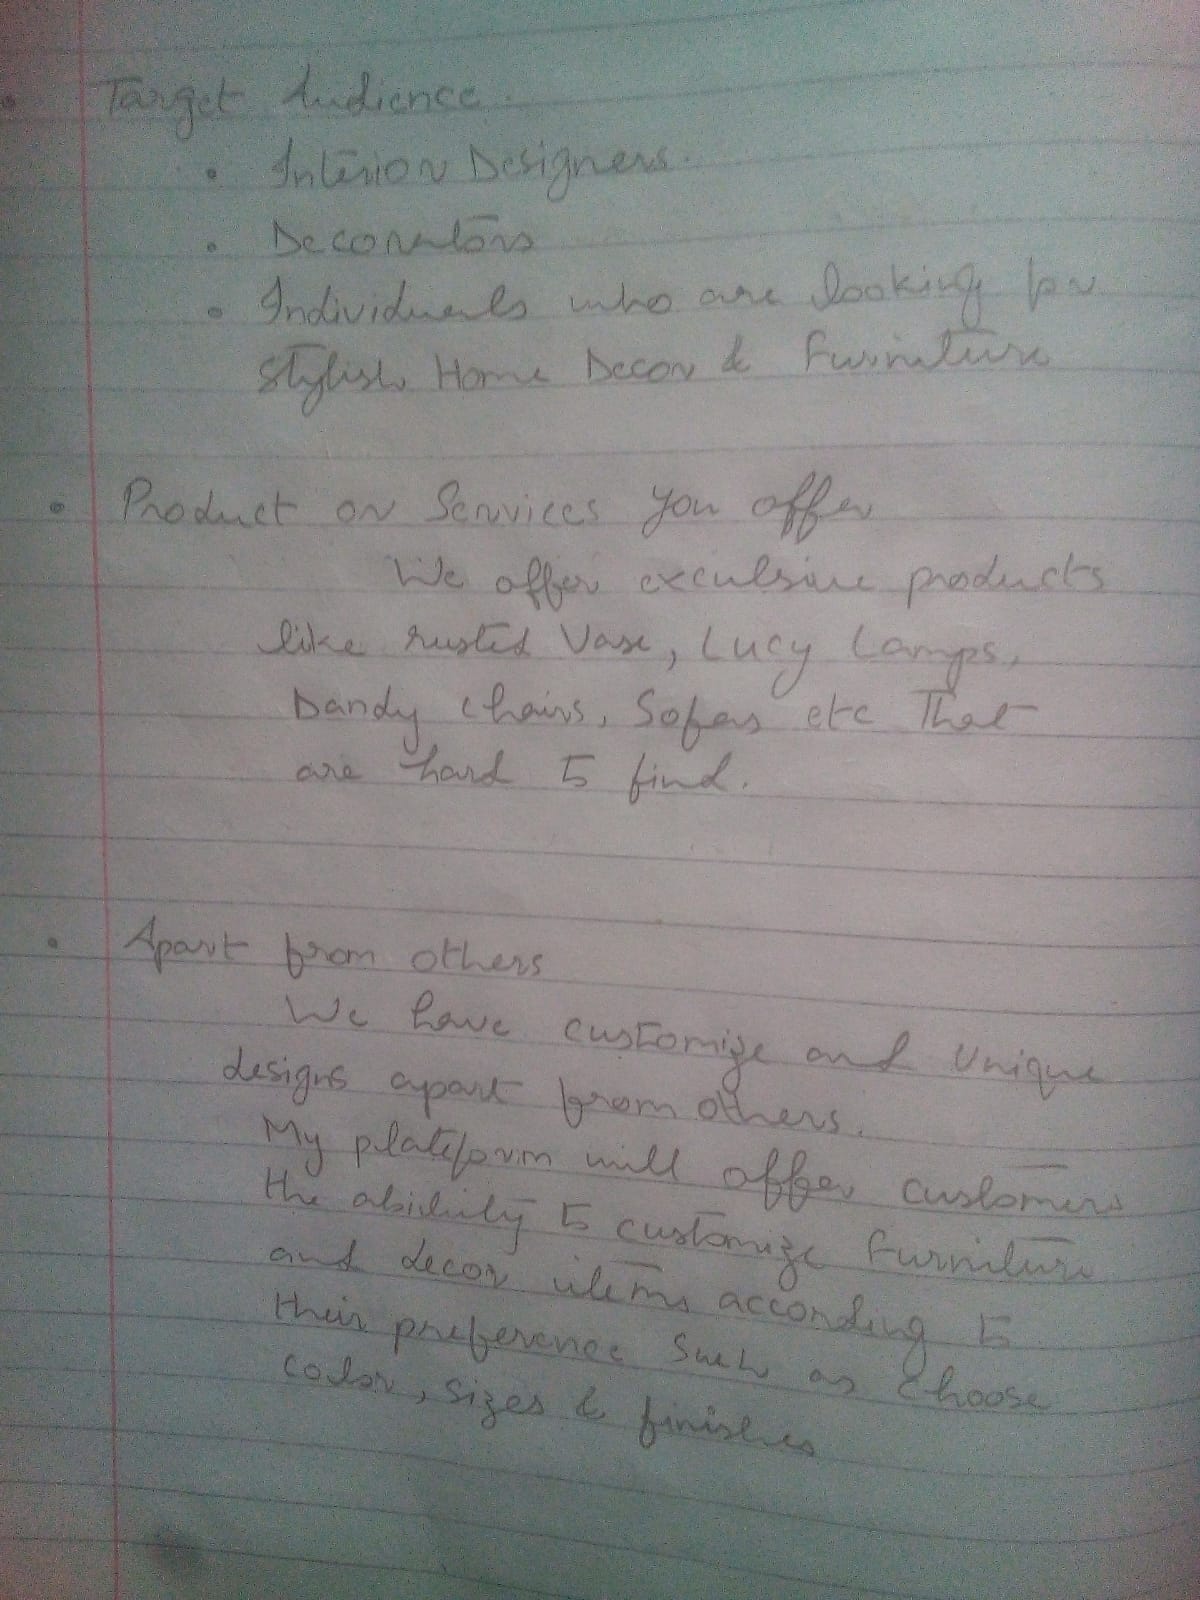 Target Audience.
• Interior Designers.
• Decorators
• Individuals who are looking for
stylish Home Decor & Furniture
• Product or Services you offer
We offer exculsive products
like rusted Vase, Lucy Lamps,
Dandy chairs, Sofas etc That
are hard to find.
• Apart from others
We have customize and Unique
designs apart from others.
My plateform will offer customers
the abichity to customize furniture
and decor items according to
their preference Such as Choose
color, sizes & finishes